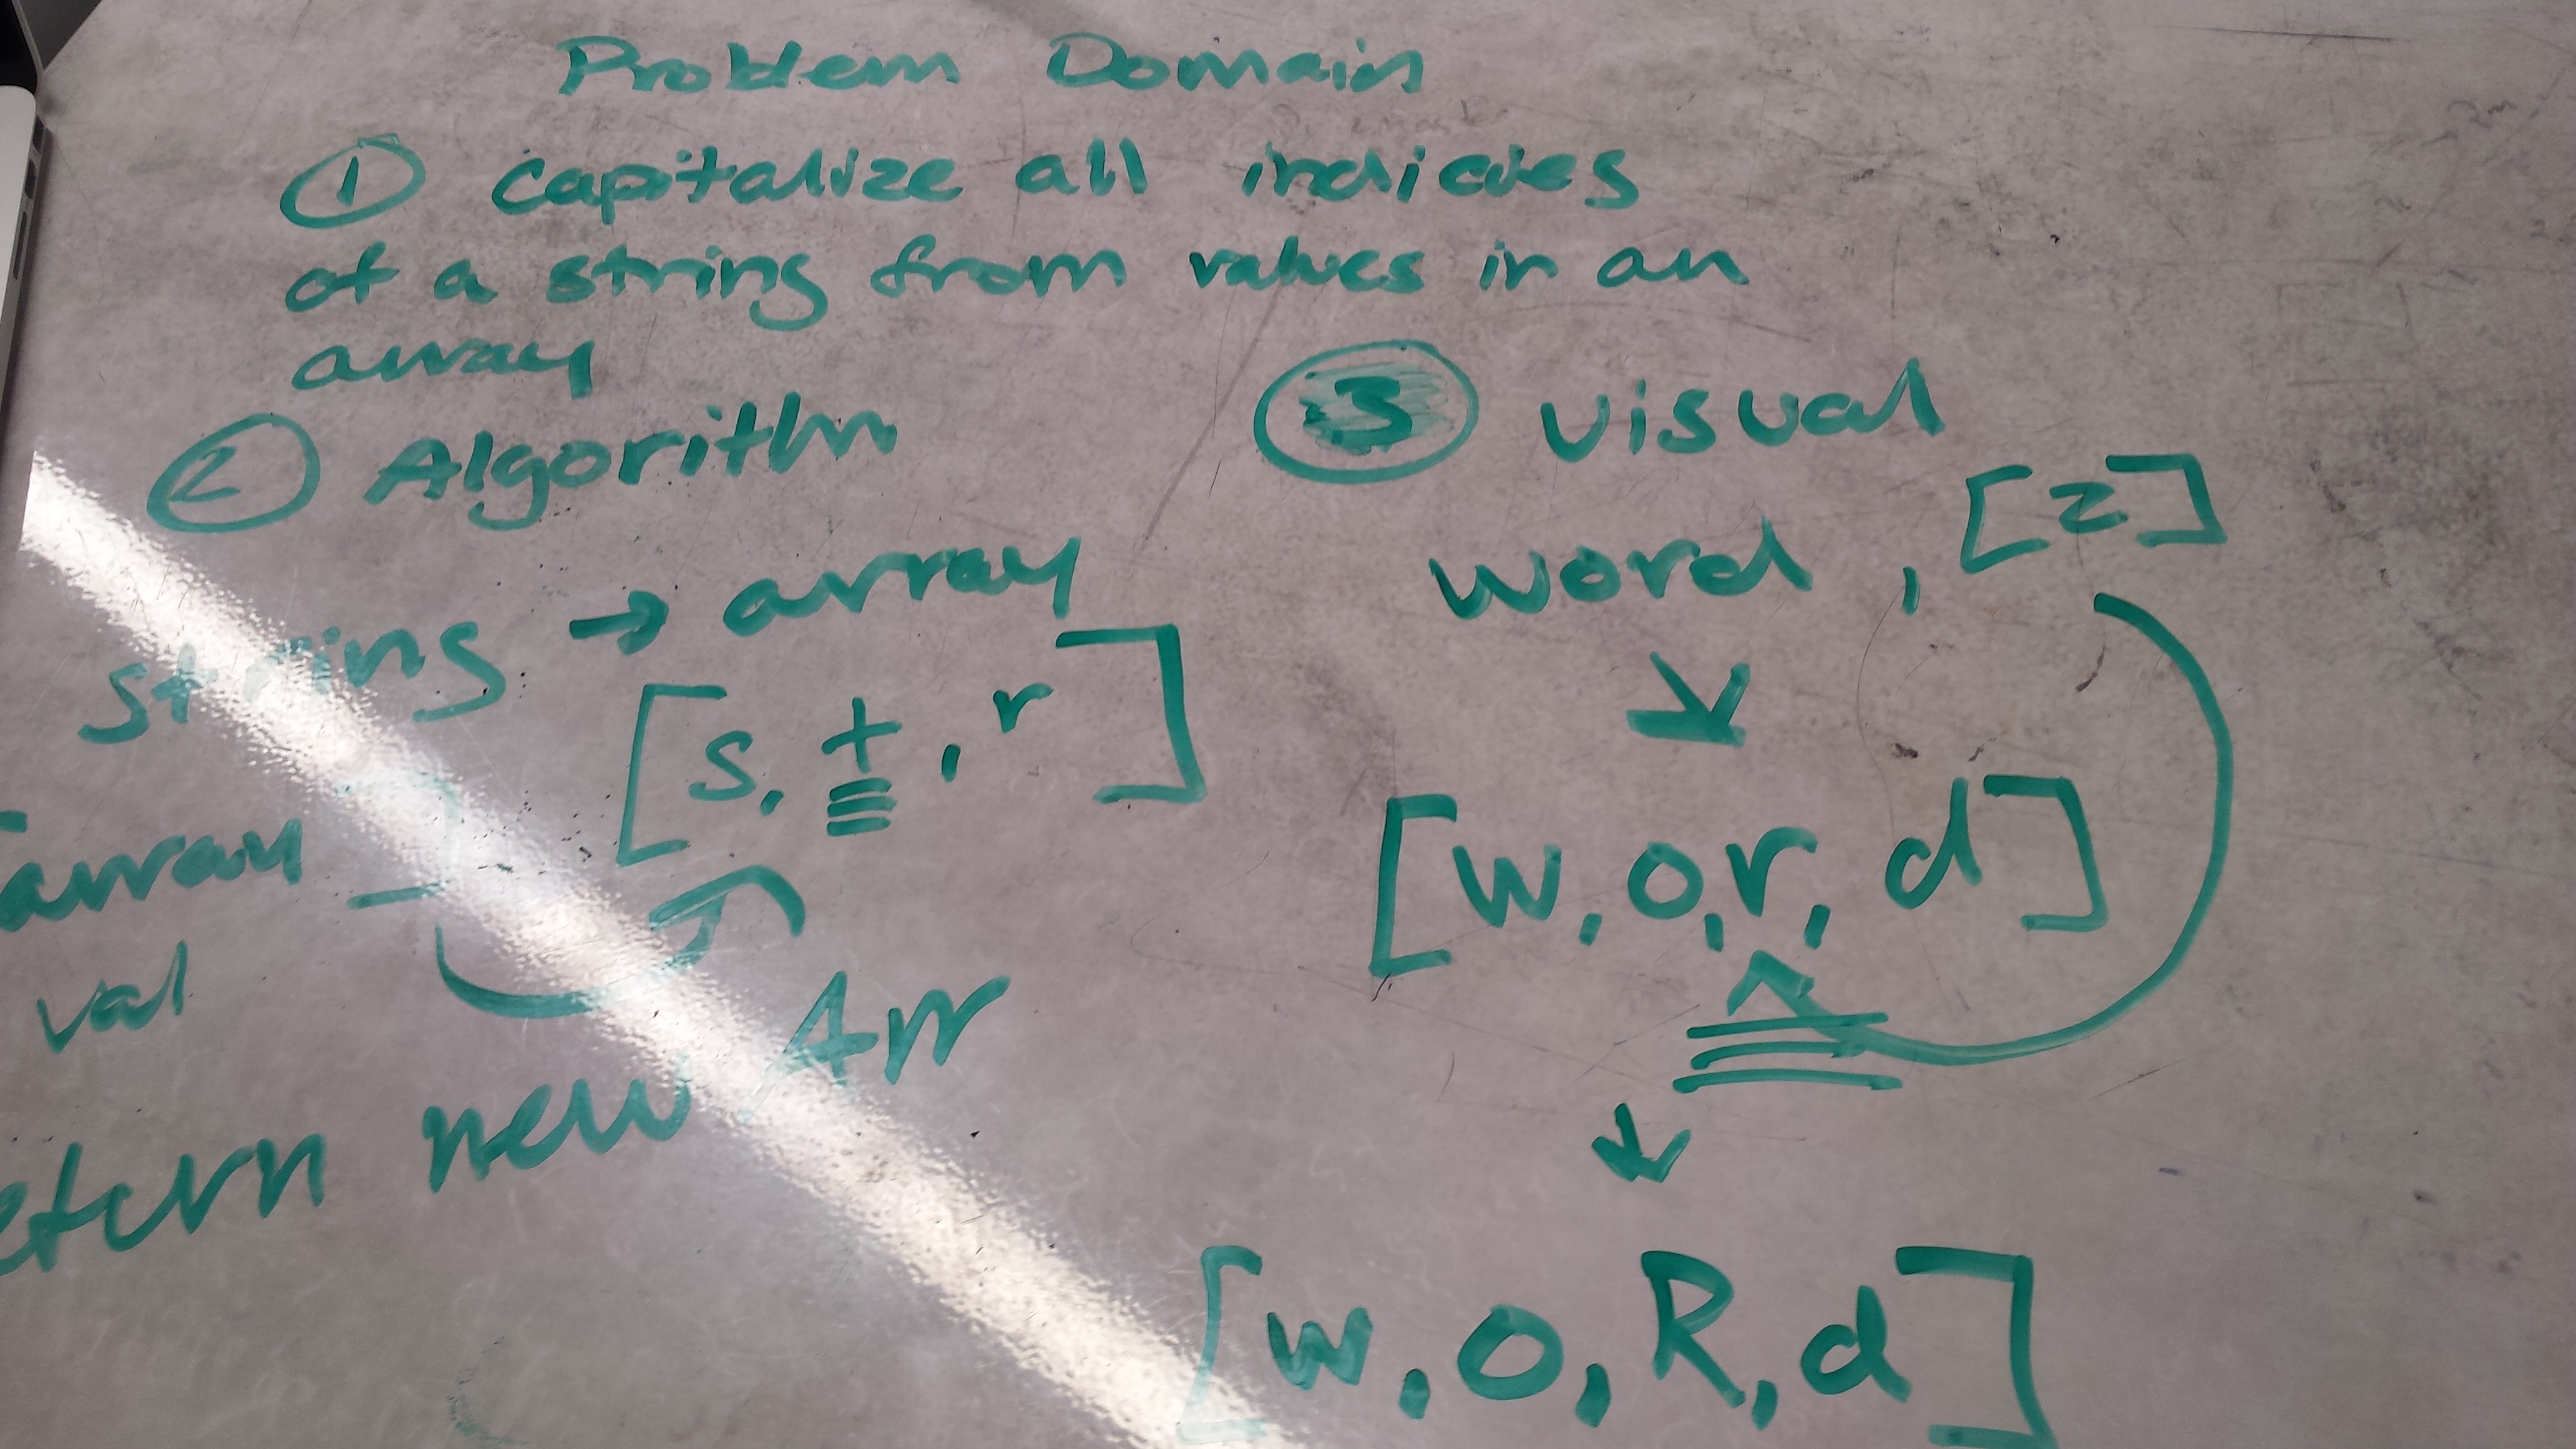 Problem Domain
① capitalize all indicies
of a string from values in an
array
② Algorithm
string → array
[s, t, r]
[array]
val
return new Arr
③ visual
word, [2]
[w, o, r, d]
[w, o, R, d]